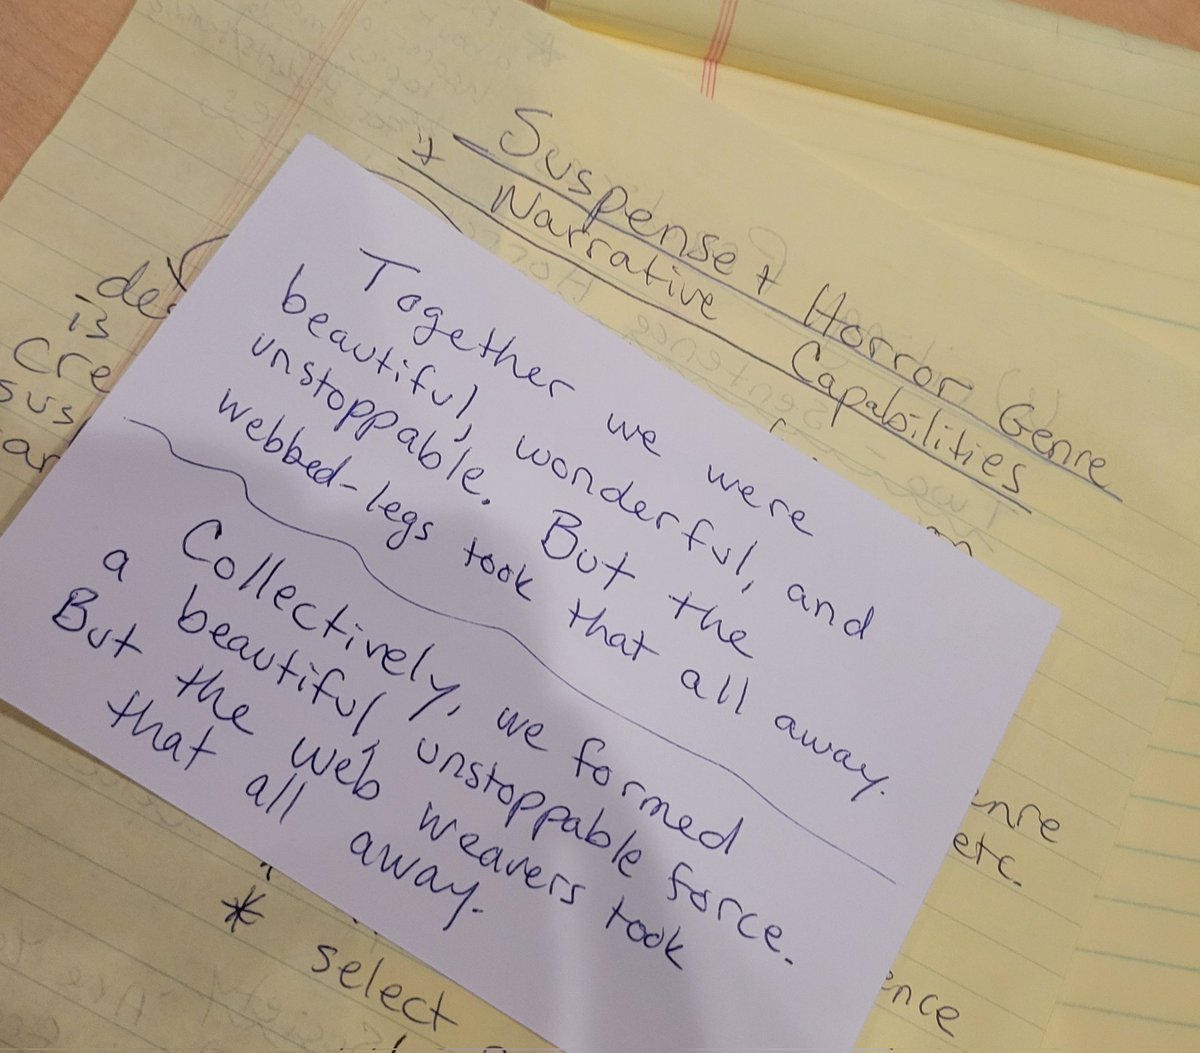 Suspense + Horror Genre
* Narrative Capabilities
Together we were
beautiful, wonderful, and
unstoppable. But the
webbed-legs took that all away.
Collectively, we formed
a beautiful, unstoppable force.
But the web weavers took
that all away.
de
is
Cre
sus
ar
enre
etc.
* select
ence